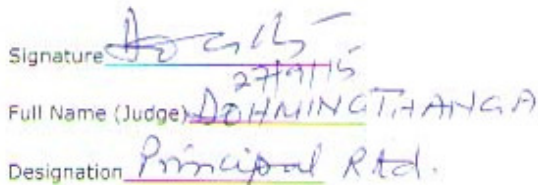 Signature
27/9/15
Full Name (Judge) DOHMINGTHANGA
Designation Principal Rtd.